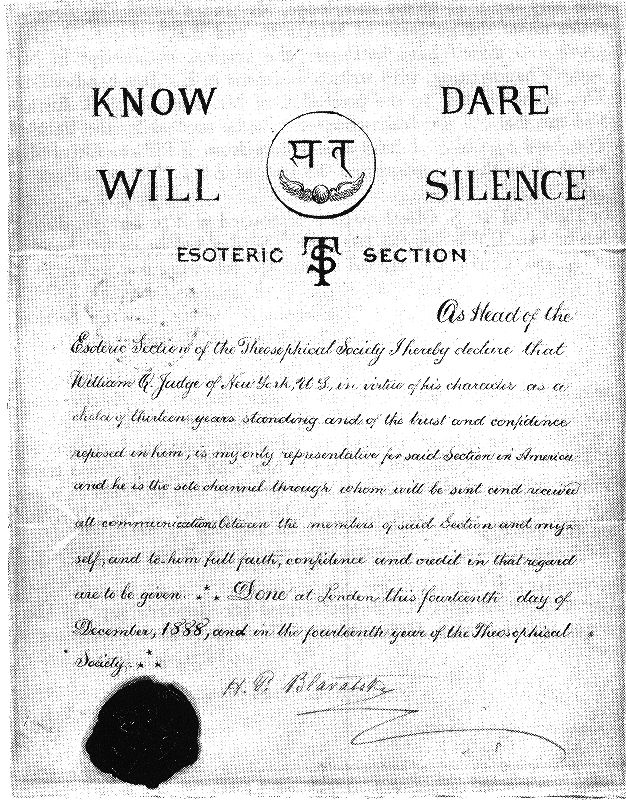 KNOW DARE
सत्
WILL SILENCE
ESOTERIC TS SECTION
As Head of the
Esoteric Section of the Theosophical Society I hereby declare that
William Q. Judge of New York, U S, in virtue of his character as a
chela of thirteen years standing and of the trust and confidence
reposed in him, is my only representative for said Section in America
and he is the sole channel through whom will be sent and received
all communications between the members of said Section and my-
self, and to him full faith, confidence and credit in that regard
are to be given. *** Done at London this fourteenth day of
December, 1888, and in the fourteenth year of the Theosophical
Society. ***
H. P. Blavatsky